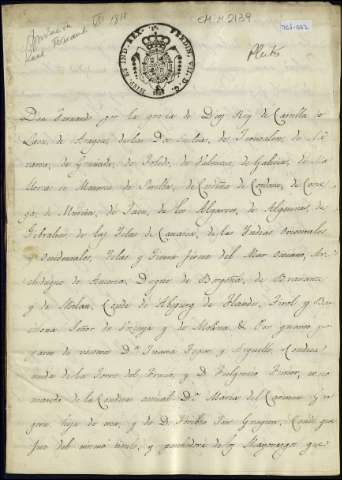 1811
CM-M 2139
Pleito
Don Fernando por la gracia de Dios Rey de Castilla de
Leon, de Aragon, de las Dos Sicilias, de Jerusalen, de Na-
varra, de Granada, de Toledo, de Valencia, de Galicia, de Ma-
llorca de Menorca de Sevilla, de Cerdeña de Cordova, de Corce-
ga, de Murcia, de Jaen, de los Algarves, de Algeciras, de
Gibraltar, de las Yslas de Canaria, de las Yndias Orientales
y Occidentales, Yslas y tierra firme del Mar Oceano, Ar-
chiduque de Austria, Duque de Borgoña, de Bravante
y de Milan, Conde de Abspurg de Flandes, Tirol y Bar-
celona Señor de Vizcaya y de Molina &. Por quanto por
parte de vosotros D.ª Juana y Arguello, Condesa
viuda de la Torre del Fresno, y D. Fulgencio como
marido de la Condesa actual D.ª Maria del Carmen
hija de esa, y de D. Toribio Conde que
fue del mismo titulo, y poseedora de los Mayorazgos que